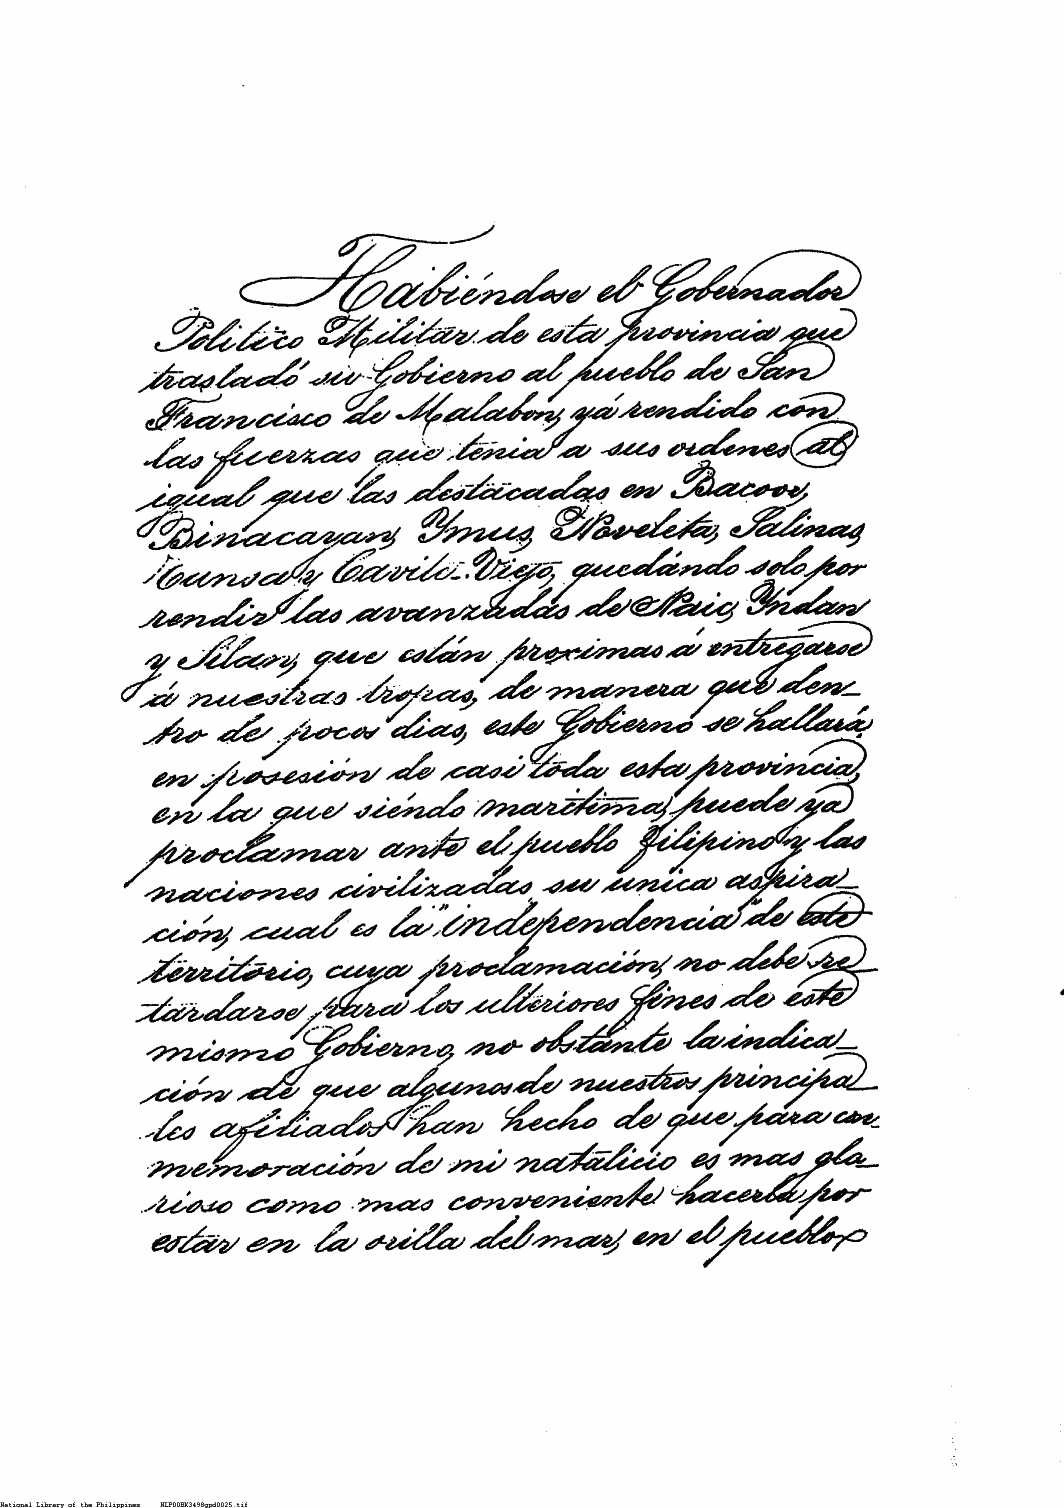 Habiéndose el Gobernador
Politico Militar de esta provincia que
trasladó su Gobierno al pueblo de San
Francisco de Malabon, yá rendido con
las fuerzas que tenia a sus ordenes al
igual que las destacadas en Bacoor,
Binacayan, Ymus, Noveleta, Salinas,
y Cavite-Viejo, quedándo solo por
rendir las avanzadas de Naic, Yndan
y Silan, que están proximas á entregarse
á nuestras tropas, de manera que den-
tro de pocos dias, este Gobierno se hallará
en posesión de casi toda esta provincia,
en la que siéndo maritima, puede ya
proclamar ante el pueblo filipino y las
naciones civilizadas su unica aspira-
ción, cual es la "independencia" de este
territorio, cuya proclamación, no debe re-
tardarse para los ulteriores fines de este
mismo Gobierno, no obstante la indica-
ción de que algunos de nuestros principa-
les afiliados han hecho de que para con-
memoración de mi natalicio es mas glo-
rioso como mas conveniente hacerla por
estar en la orilla del mar, en el pueblo
National Library of the Philippines NLP00BK3498gpd0025.tif